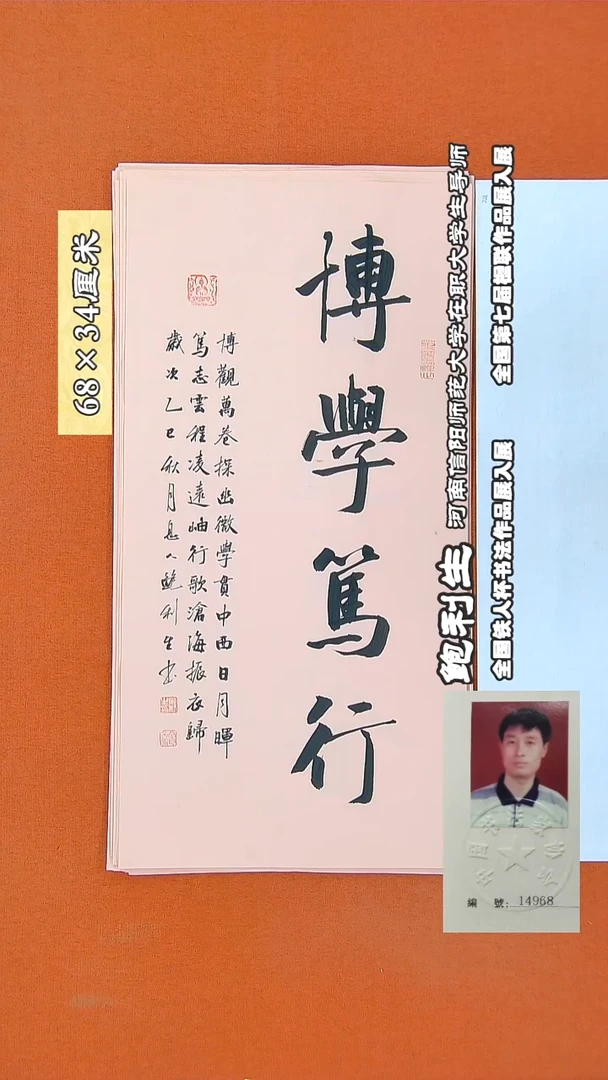 博學篤行
博觀萬卷探幽微學貫中西日月暉
篤志雲程凌遠岫行歌滄海振衣歸
歲次乙巳秋月息人鮑利生书
68×34厘米
鲍利生 河南信阳师范大学在职大学生导师
全国铁人杯书法作品展入展 全国第七届楹联作品展入展
編 號: 14968